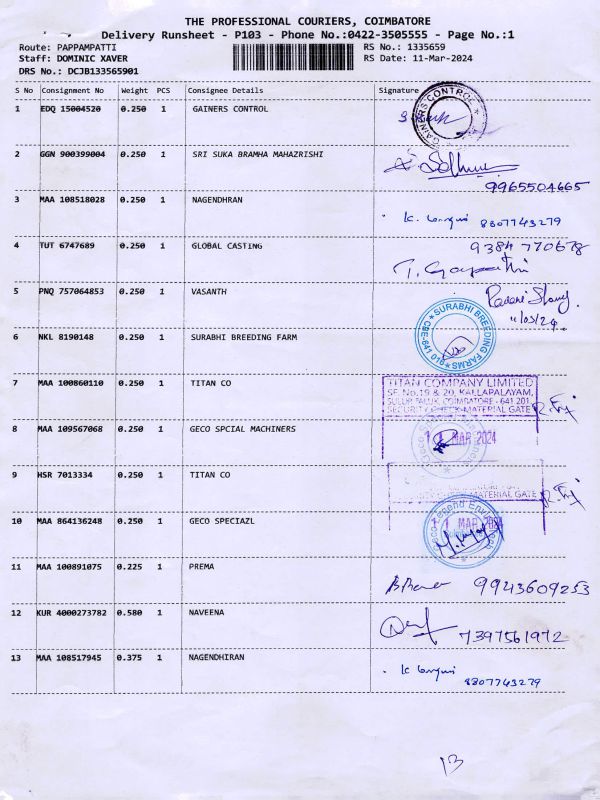 THE PROFESSIONAL COURIERS, COIMBATORE
Delivery Runsheet - P103 - Phone No.:0422-3505555 - Page No.:1
Route: PAPPAMPATTI RS No.: 1335659
Staff: DOMINIC XAVER RS Date: 11-Mar-2024
DRS No.: DCJB133565901
S No Consignment No Weight PCS Consignee Details Signature
1 EDQ 15004520 0.250 1 GAINERS CONTROL
GAINERS CONTROL
2 GGN 900399004 0.250 1 SRI SUKA BRAMHA MAHAZRISHI
9965504665
3 MAA 108518028 0.250 1 NAGENDHRAN
8307743279
4 TUT 6747689 0.250 1 GLOBAL CASTING
9384770678
5 PNQ 757064853 0.250 1 VASANTH
11/03/24
6 NKL 8190148 0.250 1 SURABHI BREEDING FARM
SURABHI BREEDING FARMS
CBE-641 016
7 MAA 100860110 0.250 1 TITAN CO
TITAN COMPANY LIMITED
SF. No.19 & 20, KALLAPALAYAM,
SULUR TALUK, COIMBATORE - 641 201.
SECURITY CHECK-MATERIAL GATE
8 MAA 109567068 0.250 1 GECO SPCIAL MACHINERS
11 MAR 2024
9 HSR 7013334 0.250 1 TITAN CO
MATERIAL GATE
10 MAA 864136248 0.250 1 GECO SPECIAZL
11 MAR 2024
11 MAA 100891075 0.225 1 PREMA
9943609253
12 KUR 4000273782 0.580 1 NAVEENA
7397561972
13 MAA 108517945 0.375 1 NAGENDHIRAN
8807743279
13